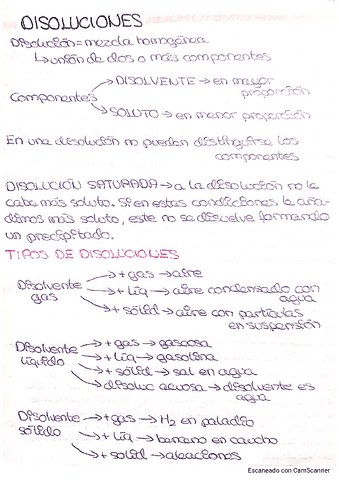 DISOLUCIONES
Disolución = mezcla homogénea
↳ unión de dos o más componentes
Componentes
→ DISOLVENTE → en mayor proporción
→ SOLUTO → en menor proporción
En una disolución no pueden distinguirse los
componentes
DISOLUCIÓN SATURADA → a la disolución no le
cabe más soluto. Si en estas condiciones le aña-
dimos más soluto, este no se disuelve formando
un precipitado.
TIPOS DE DISOLUCIONES
Disolvente gas
→ + gas → aire
→ + líq → aire condensado con agua
→ + sólid → aire con partículas en suspensión
Disolvente líquido
→ + gas → gaseosa
→ + líq → gasolina
→ + sólid → sal en agua
→ disoluc acuosa → disolvente es agua
Disolvente sólido
→ + gas → H₂ en paladio
→ + líq → benceno en caucho
→ + solid → aleaciones
Escaneado con CamScanner